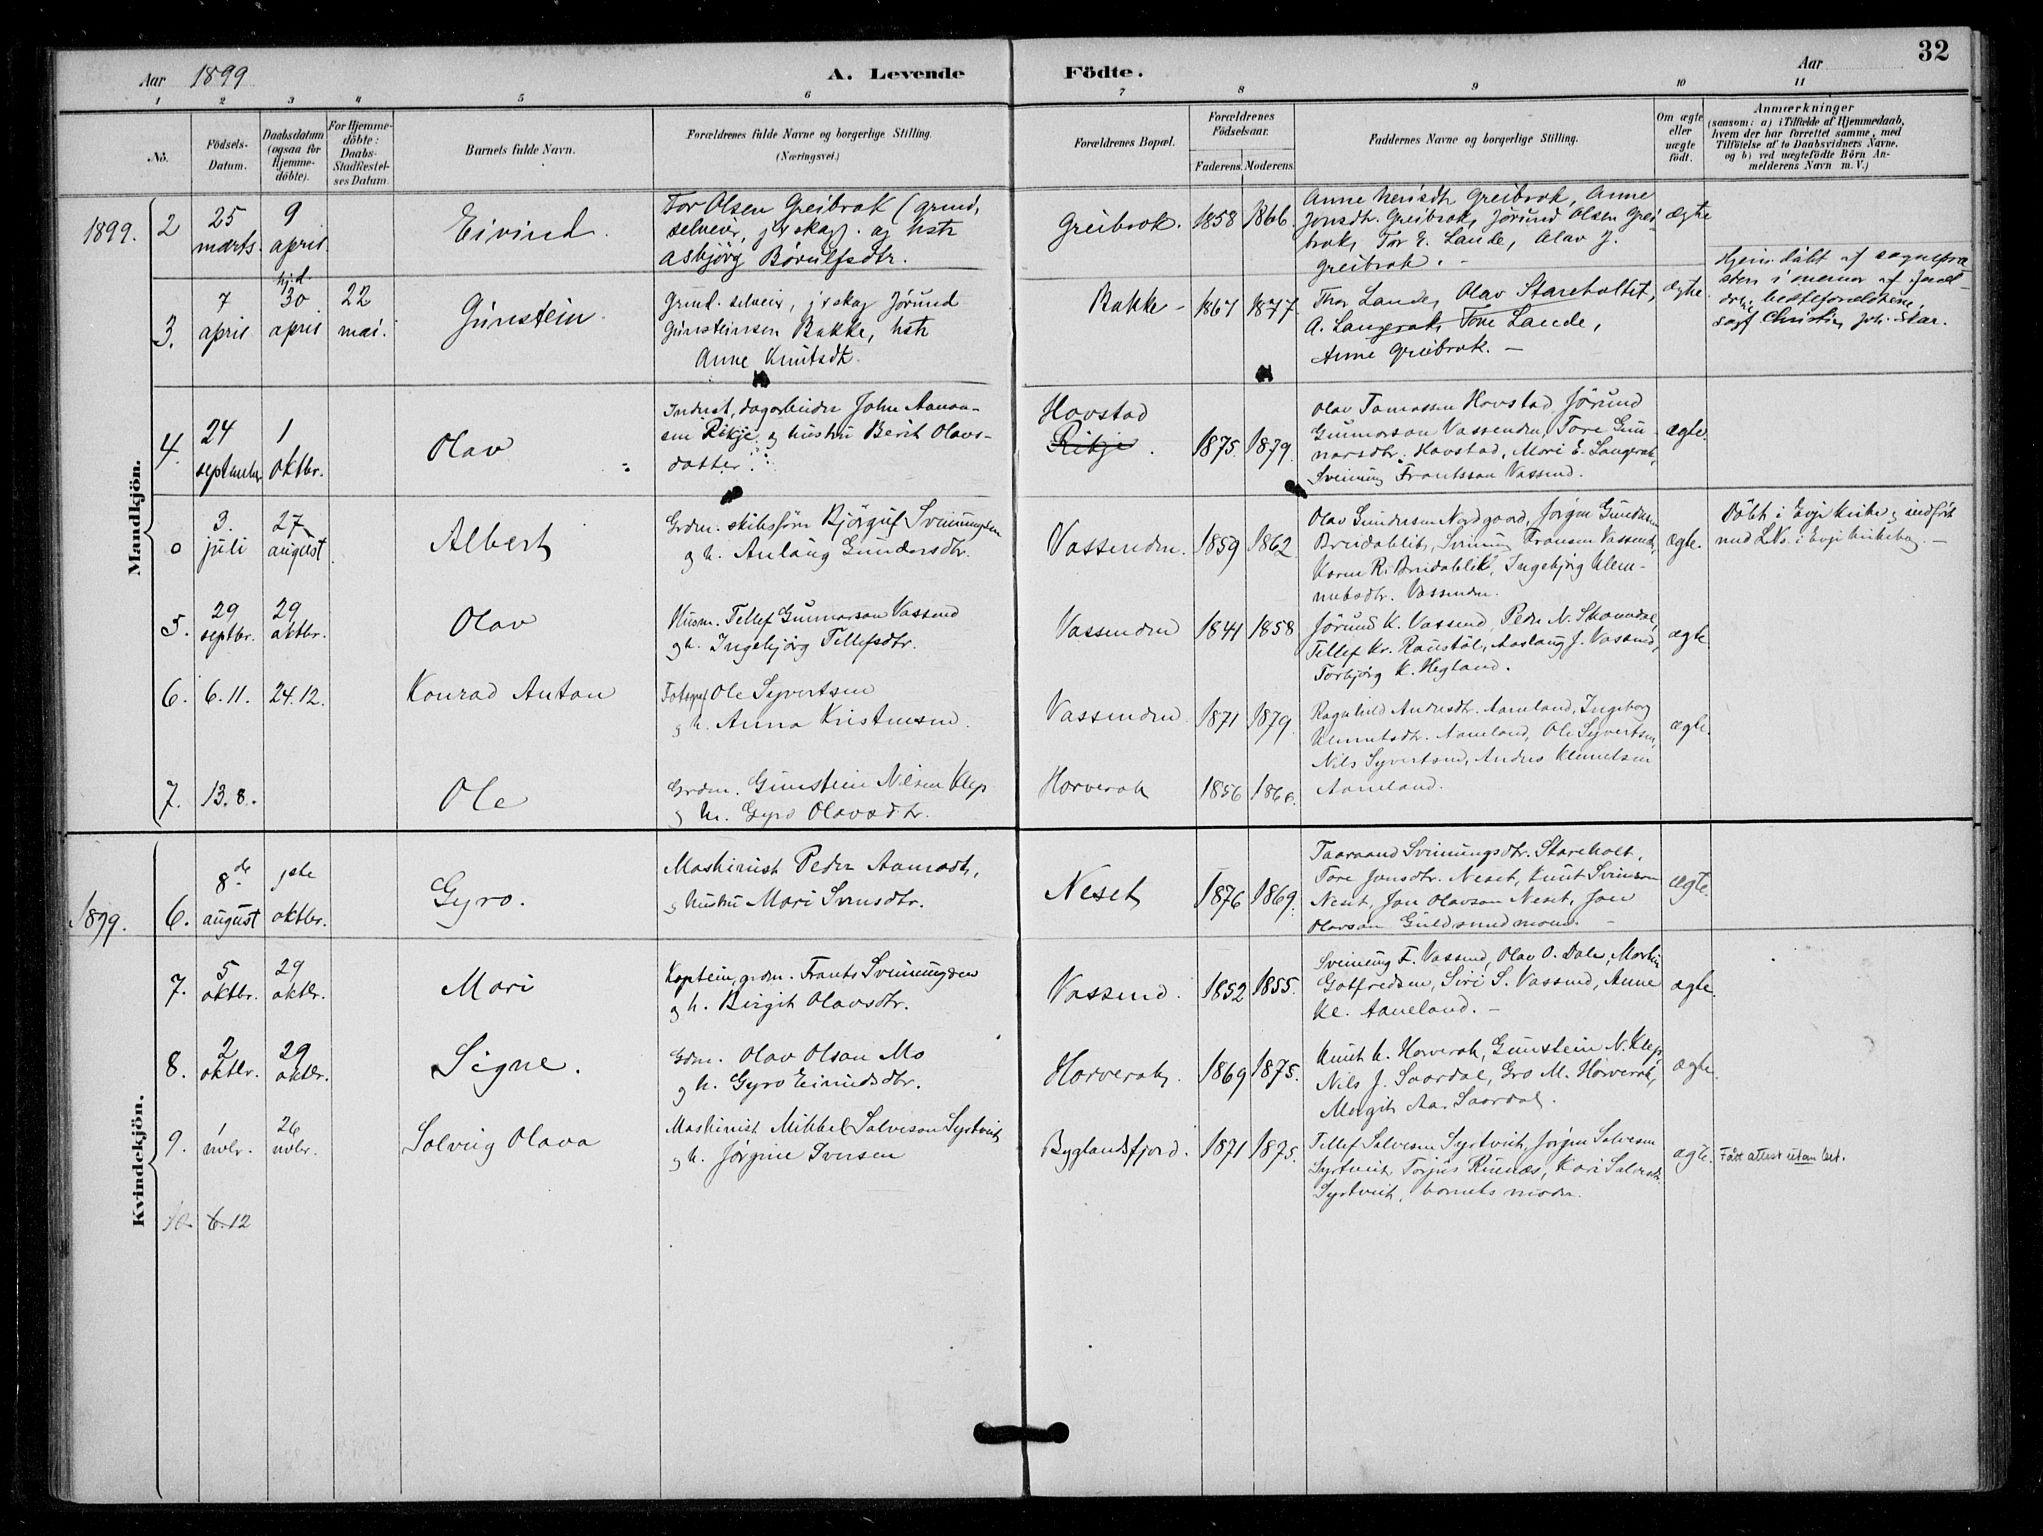 Aar 1899
A. Levende Födte.
Aar
32
1 2 3 4 5 6 7 8 9 10 11
No.
Födsels-
Datum.
Daabsdatum
(ogsaa for
Hjemme-
döbte).
For Hjemme-
döbte:
Daabs-
Stadfæstel-
ses Datum.
Barnets fulde Navn.
Forældrenes fulde Navne og borgerlige Stilling.
(Næringsvei.)
Forældrenes Bopæl.
Forældrenes
Födselsaar.
Faderens. Moderens.
Faddernes Navne og borgerlige Stilling.
Om ægte
eller
uægte
födt.
Anmærkninger
(saasom: a) i Tilfælde af Hjemmedaab,
hvem der har forrettet samme, med
Tilföielse af to Daabsvidners Navne,
og b) ved uægtefödte Börn An-
melderens Navn m. V.)
Mandkjön.
1899.
2
25
marts.
9
april.
Eivind.
Tor Olsen Greibrok (grund,
selveier, j & skog). og hstr
Asbjörg Börulfsdtr.
Greibrok.
1858 1866.
Jonsdtr. Greibrok, Jörund Olsen Grei-
brok, Tor E. Lande, Olav J.
Greibrok. -
ægte
3.
7
april
hj.d.
30
april
22
mai.
Gunstein
Grund. selveier, j & skog Jörund
Gunsteinsen Bakke, hstr
Anne Knutsdtr.
Bakke -
1867 1877.
Thor Lande, Olav Stareholtet,
A. Langerak, Tone Lande,
Anne Greibrok. -
ægte.
Hjem. döbt af sognepræ-
sten i nærvær af foræl-
4.
24
septmber
1
oktbr.
Olav
Indust. dagarbeider John Aanon-
sen Rikje og hustru Berit Olavs-
datter
Hovstad
Rikje.
1875. 1879.
Olav Tomassen Hovstad, Jörund
Gunnarson Vassenden, Tore Gun-
narsdtr. Hovstad, Mari E. Langerak,
Sveinung Frantsson Vassend.
ægte.
0
3.
juli
27
august.
Albert
Grdm. skibsförer Björguf Sveinungsen
og h. Anlaug Gundersdtr.
Vassenden.
1859 1862
Olav Gundersen Nordgaard, Jörgen Gundersen
Vassenden.
ægte.
Döbt i Evje kirke og indfört
med L.No. i Evje kirkebog. -
5.
29
septbr.
29
oktbr.
Olav
Husm. Tellef Gunnarson Vassend
og h. Ingebjörg Tellefsdtr.
Vassenden
1841 1858
Jörund K. Vassend, Peder N. Skomedal,
Tellef Kr. Raustöl, Aaslaug J. Vassend,
Torbjörg K. Hegland.
ægte.
6.
6.11.
24.12.
Konrad Anton
Fotograf Ole Syvertsen
og h. Anna Kristensen.
Vassenden.
1871 1879.
Ragnhild Andersdtr. Aaneland, Ingeborg
Klemetsdtr. Aaneland, Ole Syvertsen,
Nils Syvertsen, Anders Klemetsen
Aaneland.
ægte.
7.
13.8.
Ole
Grdm. Gunstein Nilsen Klep
og h. Gyro Olavsdtr.
Horverak
1856
Kvindekjön.
1899.
6.
8de
august
1ste
oktbr.
Gyro.
Maskinist Peder Aamodt,
og hustru Mari Svensdtr.
Neset
1876 1869.
Taaraand Sveinungsdtr. Stareholt,
Tore Jonsdtr. Neset, Knut Sveinson
Neset, Jon Olavson Neset, Jon
Olavson Guldsmedmoen. -
ægte.
7.
5
oktbr.
29
oktbr.
Mari
Kaptein, grdm. Frants Sveinungsen
og h. Birgit Olavsdtr.
Vassend.
1852 1855.
Sveinung F. Vassend, Olav O. Dale, Martin
Gotfredsen, Siri S. Vassend, Anne
Kl. Aaneland. -
ægte.
8.
2
oktbr.
29
oktbr.
Signe.
Grdm. Olav Olson Mo
og h. Gyro Eivindsdtr.
Horverak.
1869 1875.
Knut K. Horverak, Gunstein N. Klep,
Nils J. Saardal, Gro M. Horverak,
Margit Aa. Saardal.
ægte.
9.
1
nvbr.
26
nvbr.
Solveig Olava
Maskinist Mikkel Salveson Systveit
og h. Jörgine Iversen
Byglandsfjord.
1871 1875.
Tellef Salvesen Systveit, Jörgen Salvesen
Systveit, Torjus Riisnæs, Kari Salvesdtr.
Systveit, barnets moder.
ægte.
Fått attest utan
10.
6.12